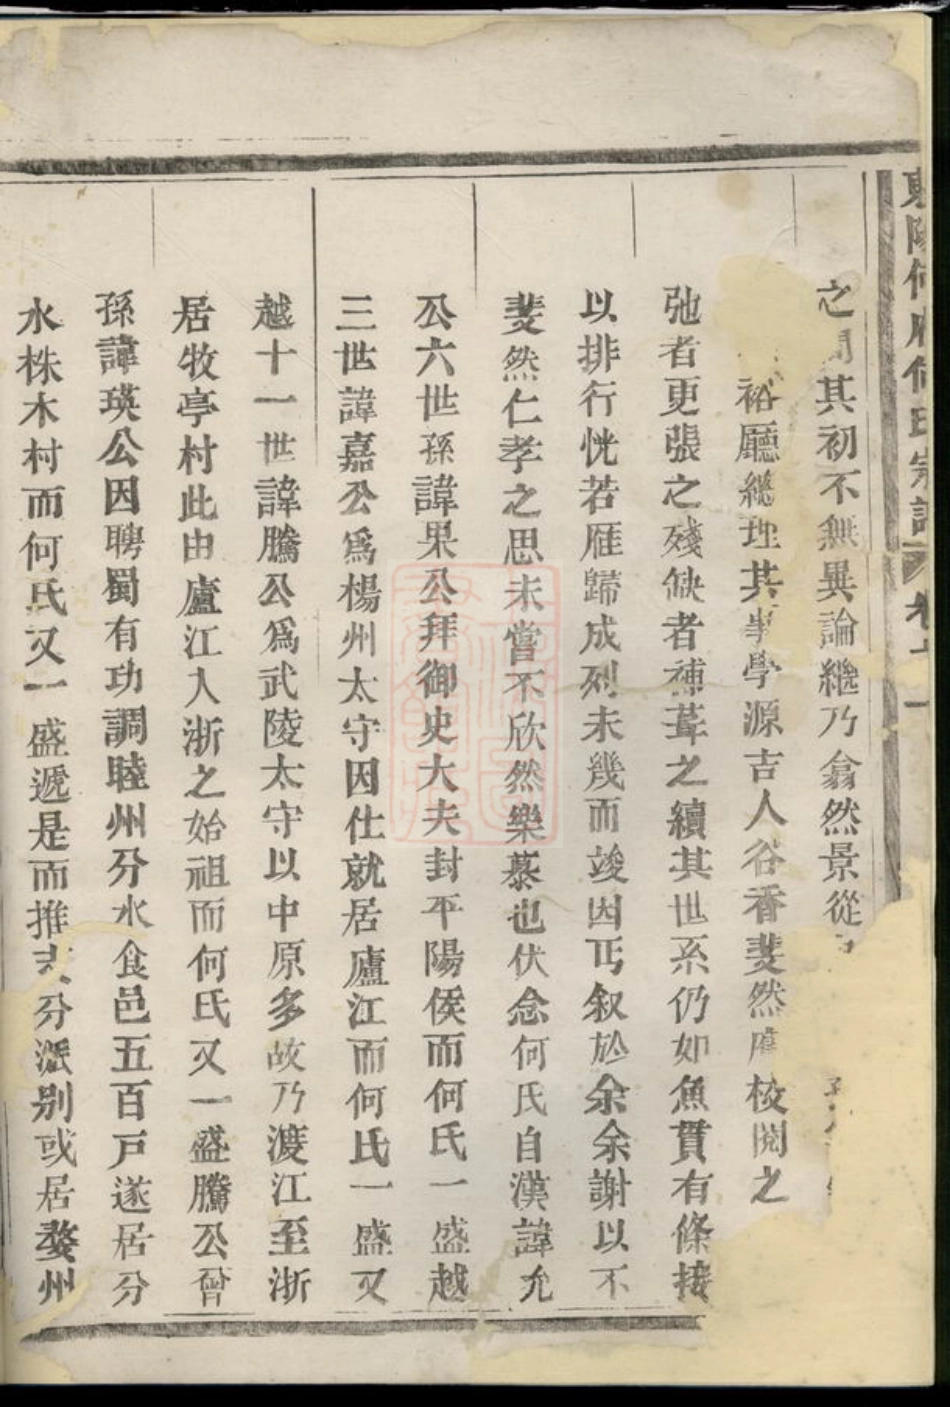 東陽何府何氏宗譜 卷之一
之間其初不無異論繼乃翕然景從
裕廳總理其事學源吉人谷香斐然應校閱之
弛者更張之殘缺者補葺之續其世系仍如魚貫有條接
以排行恍若雁歸成列未幾而竣因丐叙於余余謝以不
斐然仁孝之思未嘗不欣然樂慕也伏念何氏自漢諱允
公六世孫諱果公拜御史大夫封平陽侯而何氏一盛越
三世諱嘉公爲楊州太守因仕就居廬江而何氏一盛又
越十一世諱騰公爲武陵太守以中原多故乃渡江至浙
居牧亭村此由廬江入浙之始祖而何氏又一盛騰公曾
孫諱瑛公因聘蜀有功調睦州分水食邑五百戸遂居分
水株木村而何氏又一盛遞是而推支分派别或居婺州